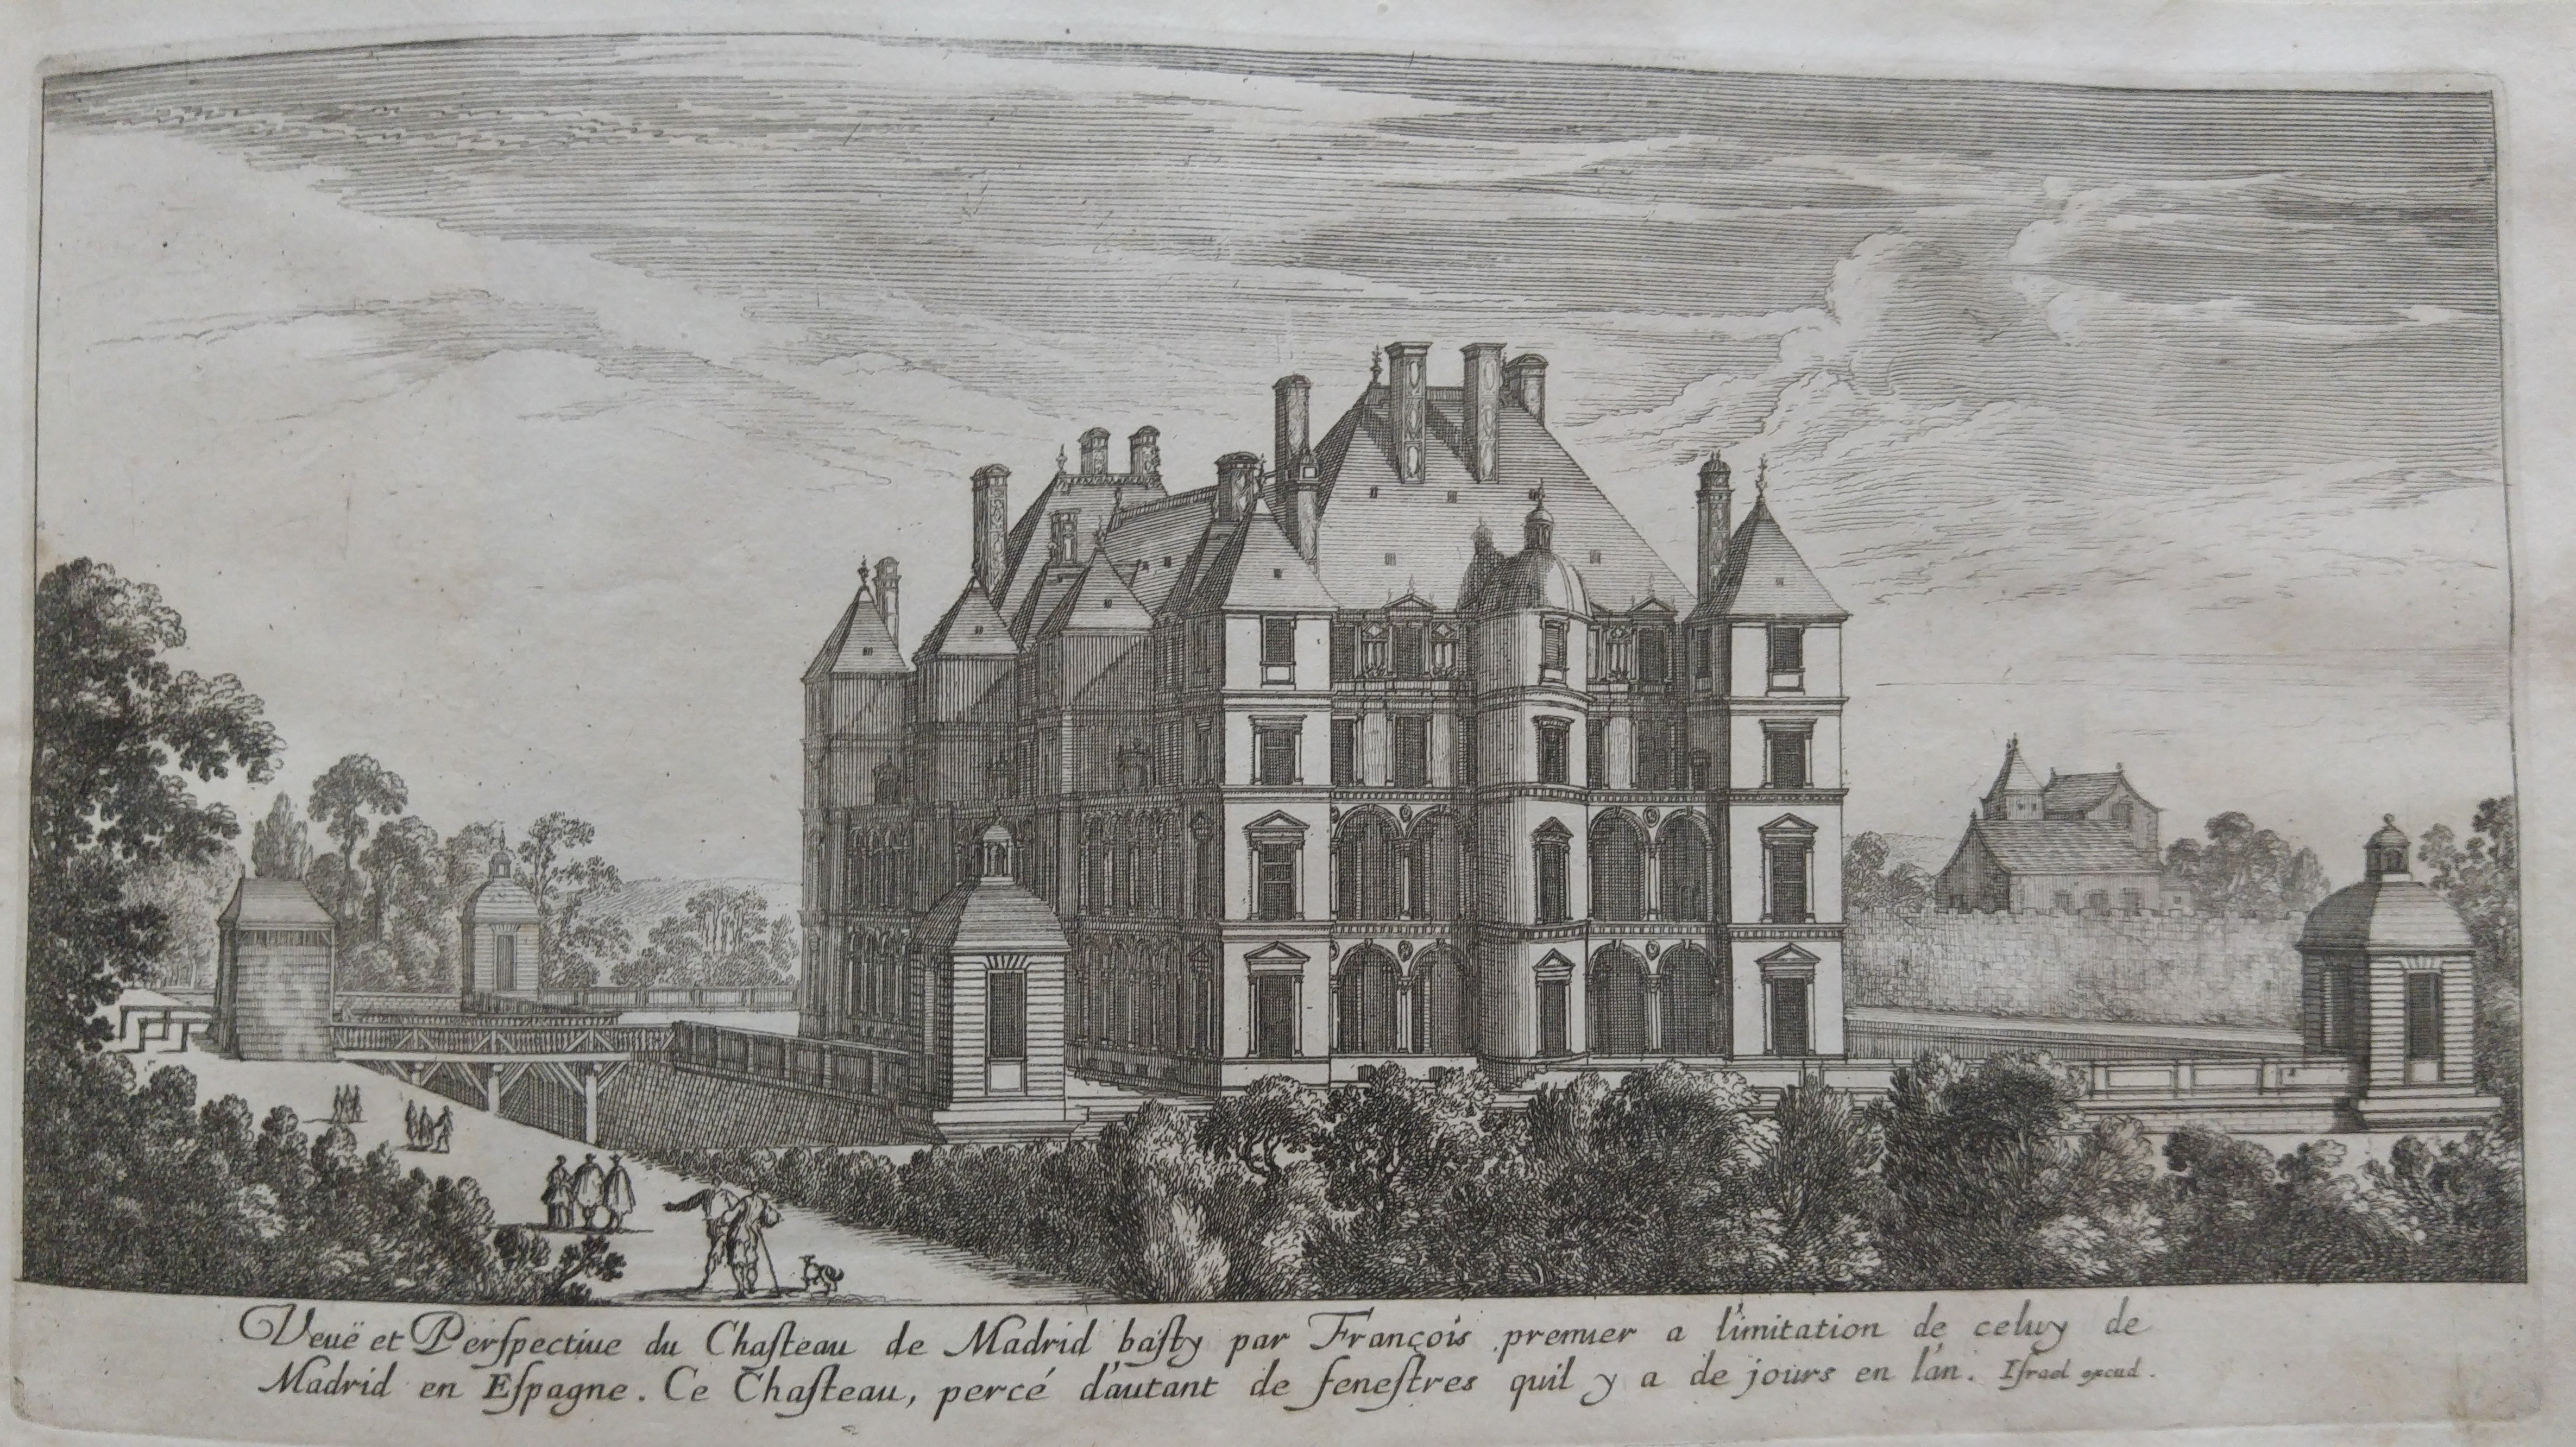 Veuë et Perſpectiue du Chaſteau de Madrid baſty par François premier a l'imitation de celuy de
Madrid en Eſpagne. Ce Chaſteau, percé d'autant de feneſtres quil y a de jours en l'an. Iſrael excud.